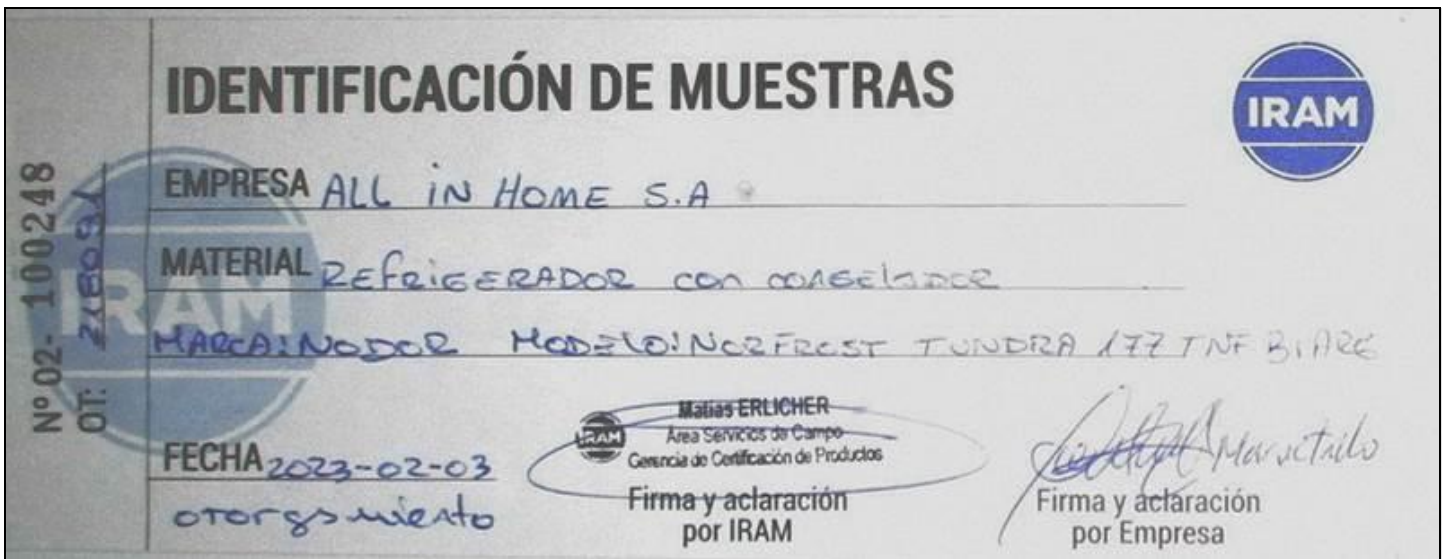 IDENTIFICACIÓN DE MUESTRAS
IRAM
Nº 02- 100248
OT: 218091
IRAM
EMPRESA ALL IN HOME S.A
MATERIAL REFRIGERADOR CON CONGELADOR
MARCA: NODOR MODELO: NORFROST TUNDRA 177 TNF
FECHA 2023-02-03
otorgamiento
IRAM
Matias ERLICHER
Area Servicios de Campo
Gerencia de Certificación de Productos
Firma y aclaración
por IRAM
Firma y aclaración
por Empresa